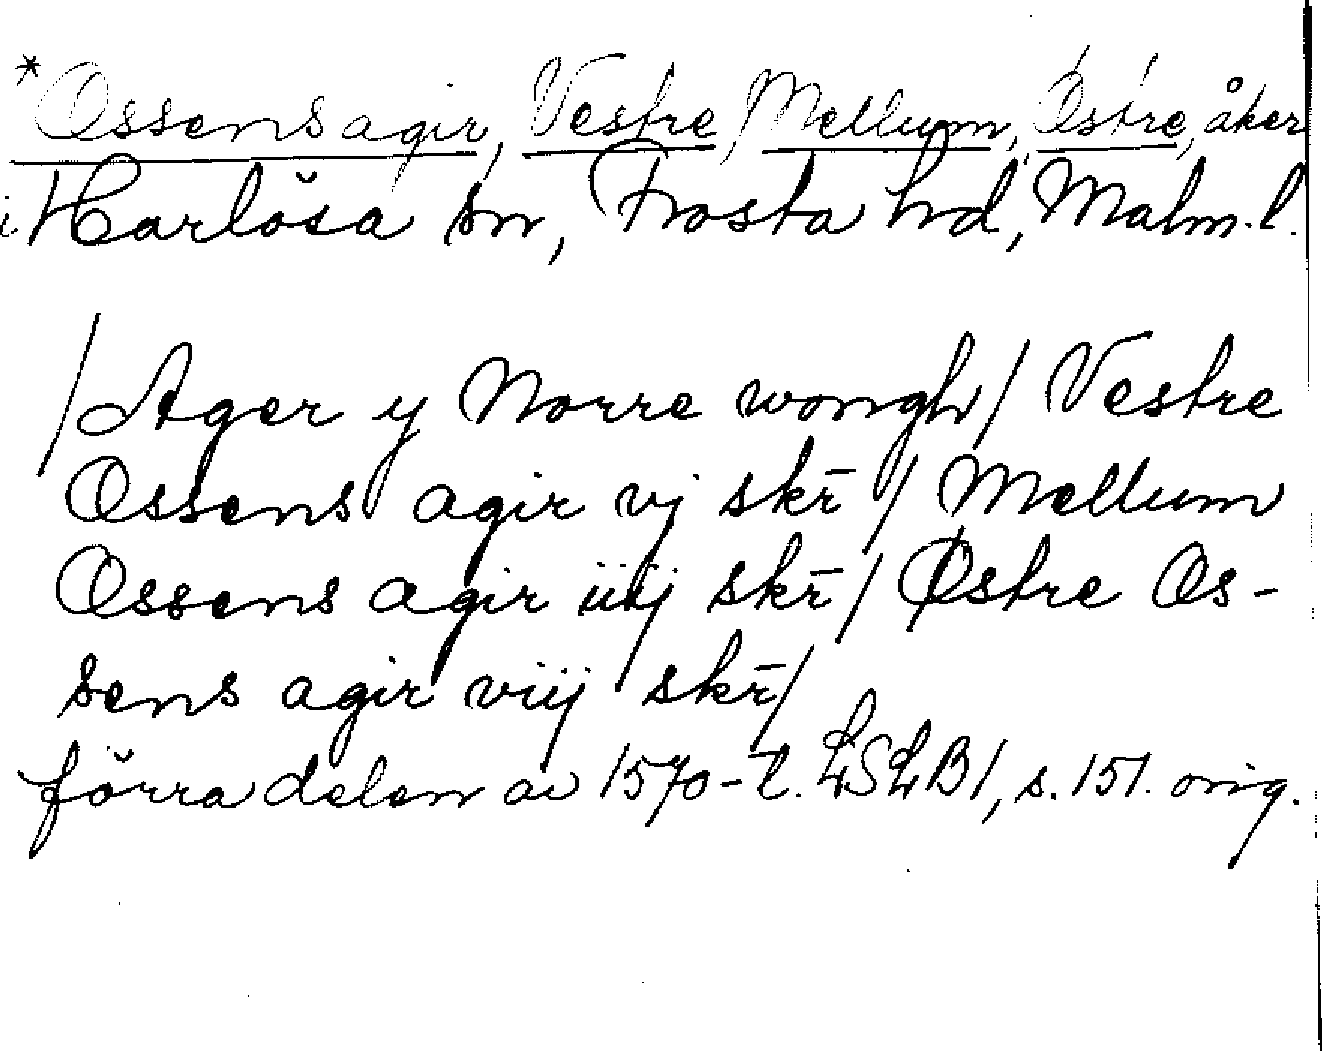 *Ossens agir, Vestre / Mellum, Østre, åker
i Harlösa sn, Frosta hd, Malm. l.
/Ager y Norre wongh/ Vestre
Ossens agir vj skr̄ / Mellum
Ossens agir iiij skr̄ / Østre Os-
sens agir viij skr̄/
förra delen av 1570-t. LSLB1, s. 151. orig.